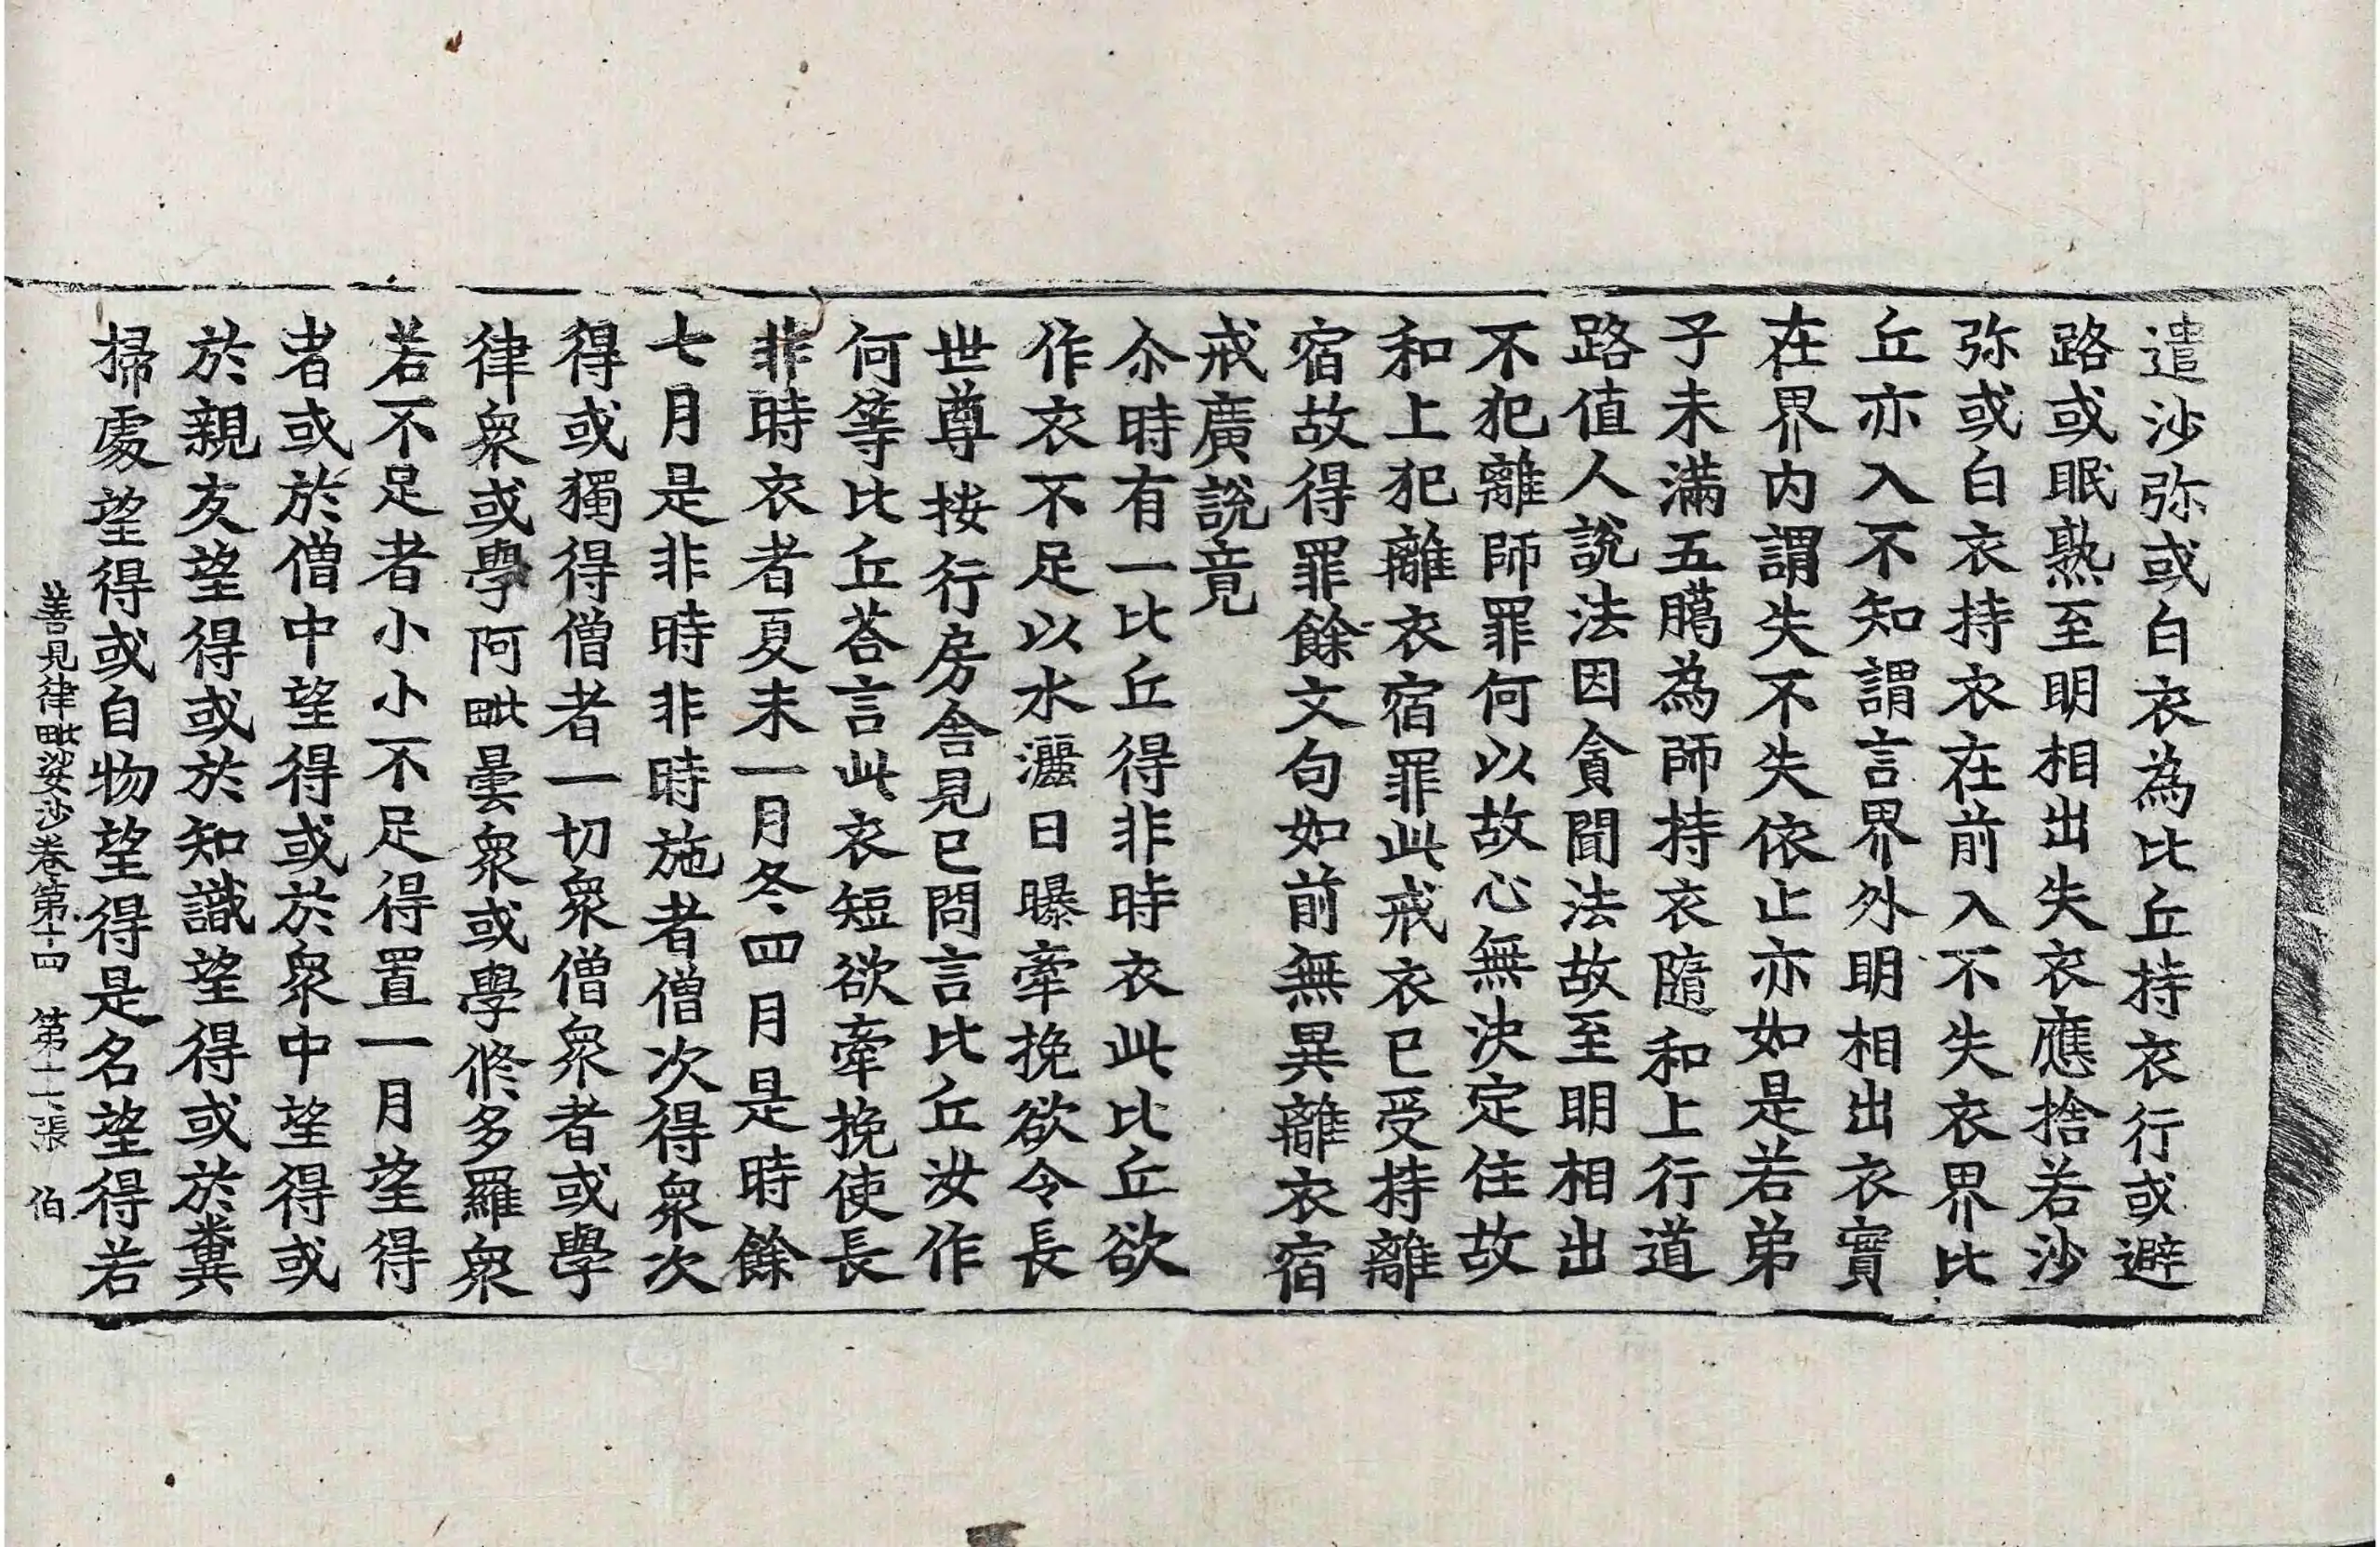 遣沙弥或白衣為比丘持衣行或避
路或眠熟至明相出失衣應捨若沙
弥或白衣持衣在前入不失衣界比
丘亦入不知謂言界外明相出衣實
在界內謂失不失依止亦如是若弟
子未滿五臈為師持衣隨和上行道
路值人說法因貪聞法故至明相出
不犯離師罪何以故心無決定住故
和上犯離衣宿罪此戒衣已受持離
宿故得罪餘文句如前無異離衣宿
戒廣說竟
尒時有一比丘得非時衣此比丘欲
作衣不足以水灑日曝牽挽欲令長
世尊按行房舍見已問言比丘汝作
何等比丘荅言此衣短欲牽挽使長
非時衣者夏末一月冬四月是時餘
七月是非時非時施者僧次得衆次
得或獨得僧者一切衆僧衆者或學
律衆或學阿毗曇衆或學脩多羅衆
若不足者小小不足得置一月望得
者或於僧中望得或於衆中望得或
於親友望得或於知識望得或於糞
掃處望得或自物望得是名望得若
善見律毗婆沙卷第十四 第十二張 伯